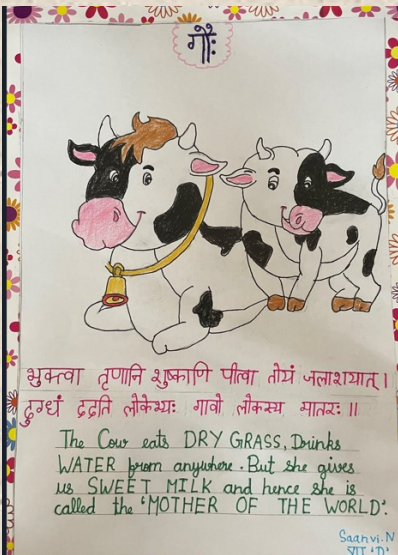 गौः
भुक्त्वा तृणानि शुष्काणि पीत्वा तोयं जलाशयात् ।
दुग्धं ददति लोकेभ्यः गावो लोकस्य मातरः ॥
The Cow eats DRY GRASS, Drinks
WATER from anywhere. But she gives
us SWEET MILK and hence she is
called the 'MOTHER OF THE WORLD'.
Saanvi.N
VII 'D'